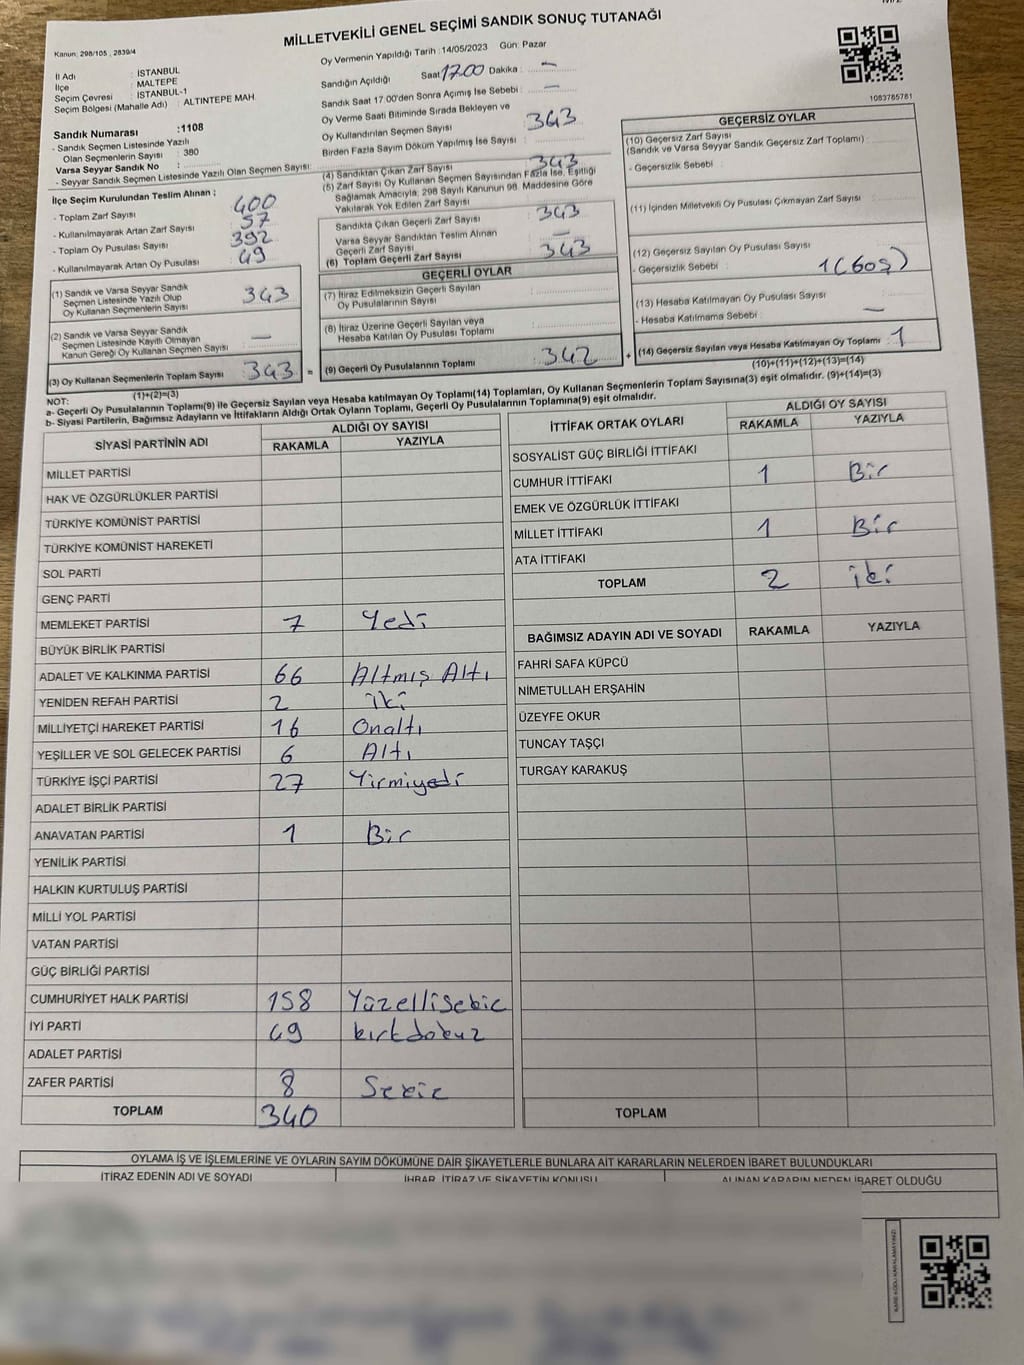 MİLLETVEKİLİ GENEL SEÇİMİ SANDIK SONUÇ TUTANAĞI
Kanun: 298/105 , 2839/4
İl Adı : İSTANBUL
İlçe : MALTEPE
Seçim Çevresi : İSTANBUL-1
Seçim Bölgesi (Mahalle Adı) : ALTINTEPE MAH
Sandık Numarası :1108
- Sandık Seçmen Listesinde Yazılı
Olan Seçmenlerin Sayısı : 380
Varsa Seyyar Sandık No :
- Seyyar Sandık Seçmen Listesinde Yazılı Olan Seçmen Sayısı:
İlçe Seçim Kurulundan Teslim Alınan ;
- Toplam Zarf Sayısı 400
- Kullanılmayarak Artan Zarf Sayısı 57
- Toplam Oy Pusulası Sayısı 392
- Kullanılmayarak Artan Oy Pusulası 49
(1) Sandık ve Varsa Seyyar Sandık
Seçmen Listesinde Yazılı Olup
Oy Kullanan Seçmenlerin Sayısı 343
(2) Sandık ve Varsa Seyyar Sandık
Seçmen Listesinde Kayıtlı Olmayan
Kanun Gereği Oy Kullanan Seçmen Sayısı : —
(3) Oy Kullanan Seçmenlerin Toplam Sayısı 343 =
(1)+(2)=(3)
Oy Vermenin Yapıldığı Tarih :14/05/2023 Gün: Pazar
Sandığın Açıldığı Saat 17.00 Dakika : —
Sandık Saat 17.00'den Sonra Açımış İse Sebebi : —
Oy Verme Saati Bitiminde Sırada Bekleyen ve
Oy Kullandırılan Seçmen Sayısı : 343
Birden Fazla Sayım Döküm Yapılmış İse Sayısı :
(4) Sandıktan Çıkan Zarf Sayısı 343
(5) Zarf Sayısı Oy Kullanan Seçmen Sayısından Fazla İse, Eşitliği
Sağlamak Amacıyla, 298 Sayılı Kanunun 98. Maddesine Göre
Yakılarak Yok Edilen Zarf Sayısı
Sandıkta Çıkan Geçerli Zarf Sayısı : 343
Varsa Seyyar Sandıktan Teslim Alınan
Geçerli Zarf Sayısı : —
(6) Toplam Geçerli Zarf Sayısı 343
GEÇERLİ OYLAR
(7) İtiraz Edilmeksizin Geçerli Sayılan
Oy Pusulalarının Sayısı :
(8) İtiraz Üzerine Geçerli Sayılan veya
Hesaba Katılan Oy Pusulası Toplamı :
(9) Geçerli Oy Pusulalarının Toplamı : 342 +
1083765781
GEÇERSİZ OYLAR
(10) Geçersiz Zarf Sayısı
(Sandık ve Varsa Seyyar Sandık Geçersiz Zarf Toplamı) :
- Geçersizlik Sebebi :
(11) İçinden Milletvekili Oy Pusulası Çıkmayan Zarf Sayısı :
(12) Geçersiz Sayılan Oy Pusulası Sayısı :
- Geçersizlik Sebebi : 1 (Boş)
(13) Hesaba Katılmayan Oy Pusulası Sayısı :
- Hesaba Katılmama Sebebi : —
(14) Geçersiz Sayılan veya Hesaba Katılmayan Oy Toplamı : 1
(10)+(11)+(12)+(13)=(14)
NOT:
a- Geçerli Oy Pusulalarının Toplamı(9) ile Geçersiz Sayılan veya Hesaba katılmayan Oy Toplamı(14) Toplamları, Oy Kullanan Seçmenlerin Toplam Sayısına(3) eşit olmalıdır. (9)+(14)=(3)
b- Siyasi Partilerin, Bağımsız Adayların ve İttifakların Aldığı Ortak Oyların Toplamı, Geçerli Oy Pusulalarının Toplamına(9) eşit olmalıdır.
SİYASİ PARTİNİN ADI ALDIĞI OY SAYISI
RAKAMLA YAZIYLA
MİLLET PARTİSİ
HAK VE ÖZGÜRLÜKLER PARTİSİ
TÜRKİYE KOMÜNİST PARTİSİ
TÜRKİYE KOMÜNİST HAREKETİ
SOL PARTİ
GENÇ PARTİ
MEMLEKET PARTİSİ 7 Yedi
BÜYÜK BİRLİK PARTİSİ
ADALET VE KALKINMA PARTİSİ 66 Altmış Altı
YENİDEN REFAH PARTİSİ 2 iki
MİLLİYETÇİ HAREKET PARTİSİ 16 Onaltı
YEŞİLLER VE SOL GELECEK PARTİSİ 6 Altı
TÜRKİYE İŞÇİ PARTİSİ 27 Yirmiyedi
ADALET BİRLİK PARTİSİ
ANAVATAN PARTİSİ 1 Bir
YENİLİK PARTİSİ
HALKIN KURTULUŞ PARTİSİ
MİLLİ YOL PARTİSİ
VATAN PARTİSİ
GÜÇ BİRLİĞİ PARTİSİ
CUMHURİYET HALK PARTİSİ 158 Yüzellisekiz
İYİ PARTİ 49 kırkdokuz
ADALET PARTİSİ
ZAFER PARTİSİ 8 Sekiz
TOPLAM 340
İTTİFAK ORTAK OYLARI ALDIĞI OY SAYISI
RAKAMLA YAZIYLA
SOSYALİST GÜÇ BİRLİĞİ İTTİFAKI
CUMHUR İTTİFAKI 1 Bir
EMEK VE ÖZGÜRLÜK İTTİFAKI
MİLLET İTTİFAKI 1 Bir
ATA İTTİFAKI
TOPLAM 2 iki
BAĞIMSIZ ADAYIN ADI VE SOYADI RAKAMLA YAZIYLA
FAHRİ SAFA KÜPCÜ
NİMETULLAH ERŞAHİN
ÜZEYFE OKUR
TUNCAY TAŞÇI
TURGAY KARAKUŞ
TOPLAM
OYLAMA İŞ VE İŞLEMLERİNE VE OYLARIN SAYIM DÖKÜMÜNE DAİR ŞİKAYETLERLE BUNLARA AİT KARARLARIN NELERDEN İBARET BULUNDUKLARI
İTİRAZ EDENİN ADI VE SOYADI İHBAR, İTİRAZ VE ŞİKAYETİN KONUSU ALINAN KARARIN NEDEN İBARET OLDUĞU